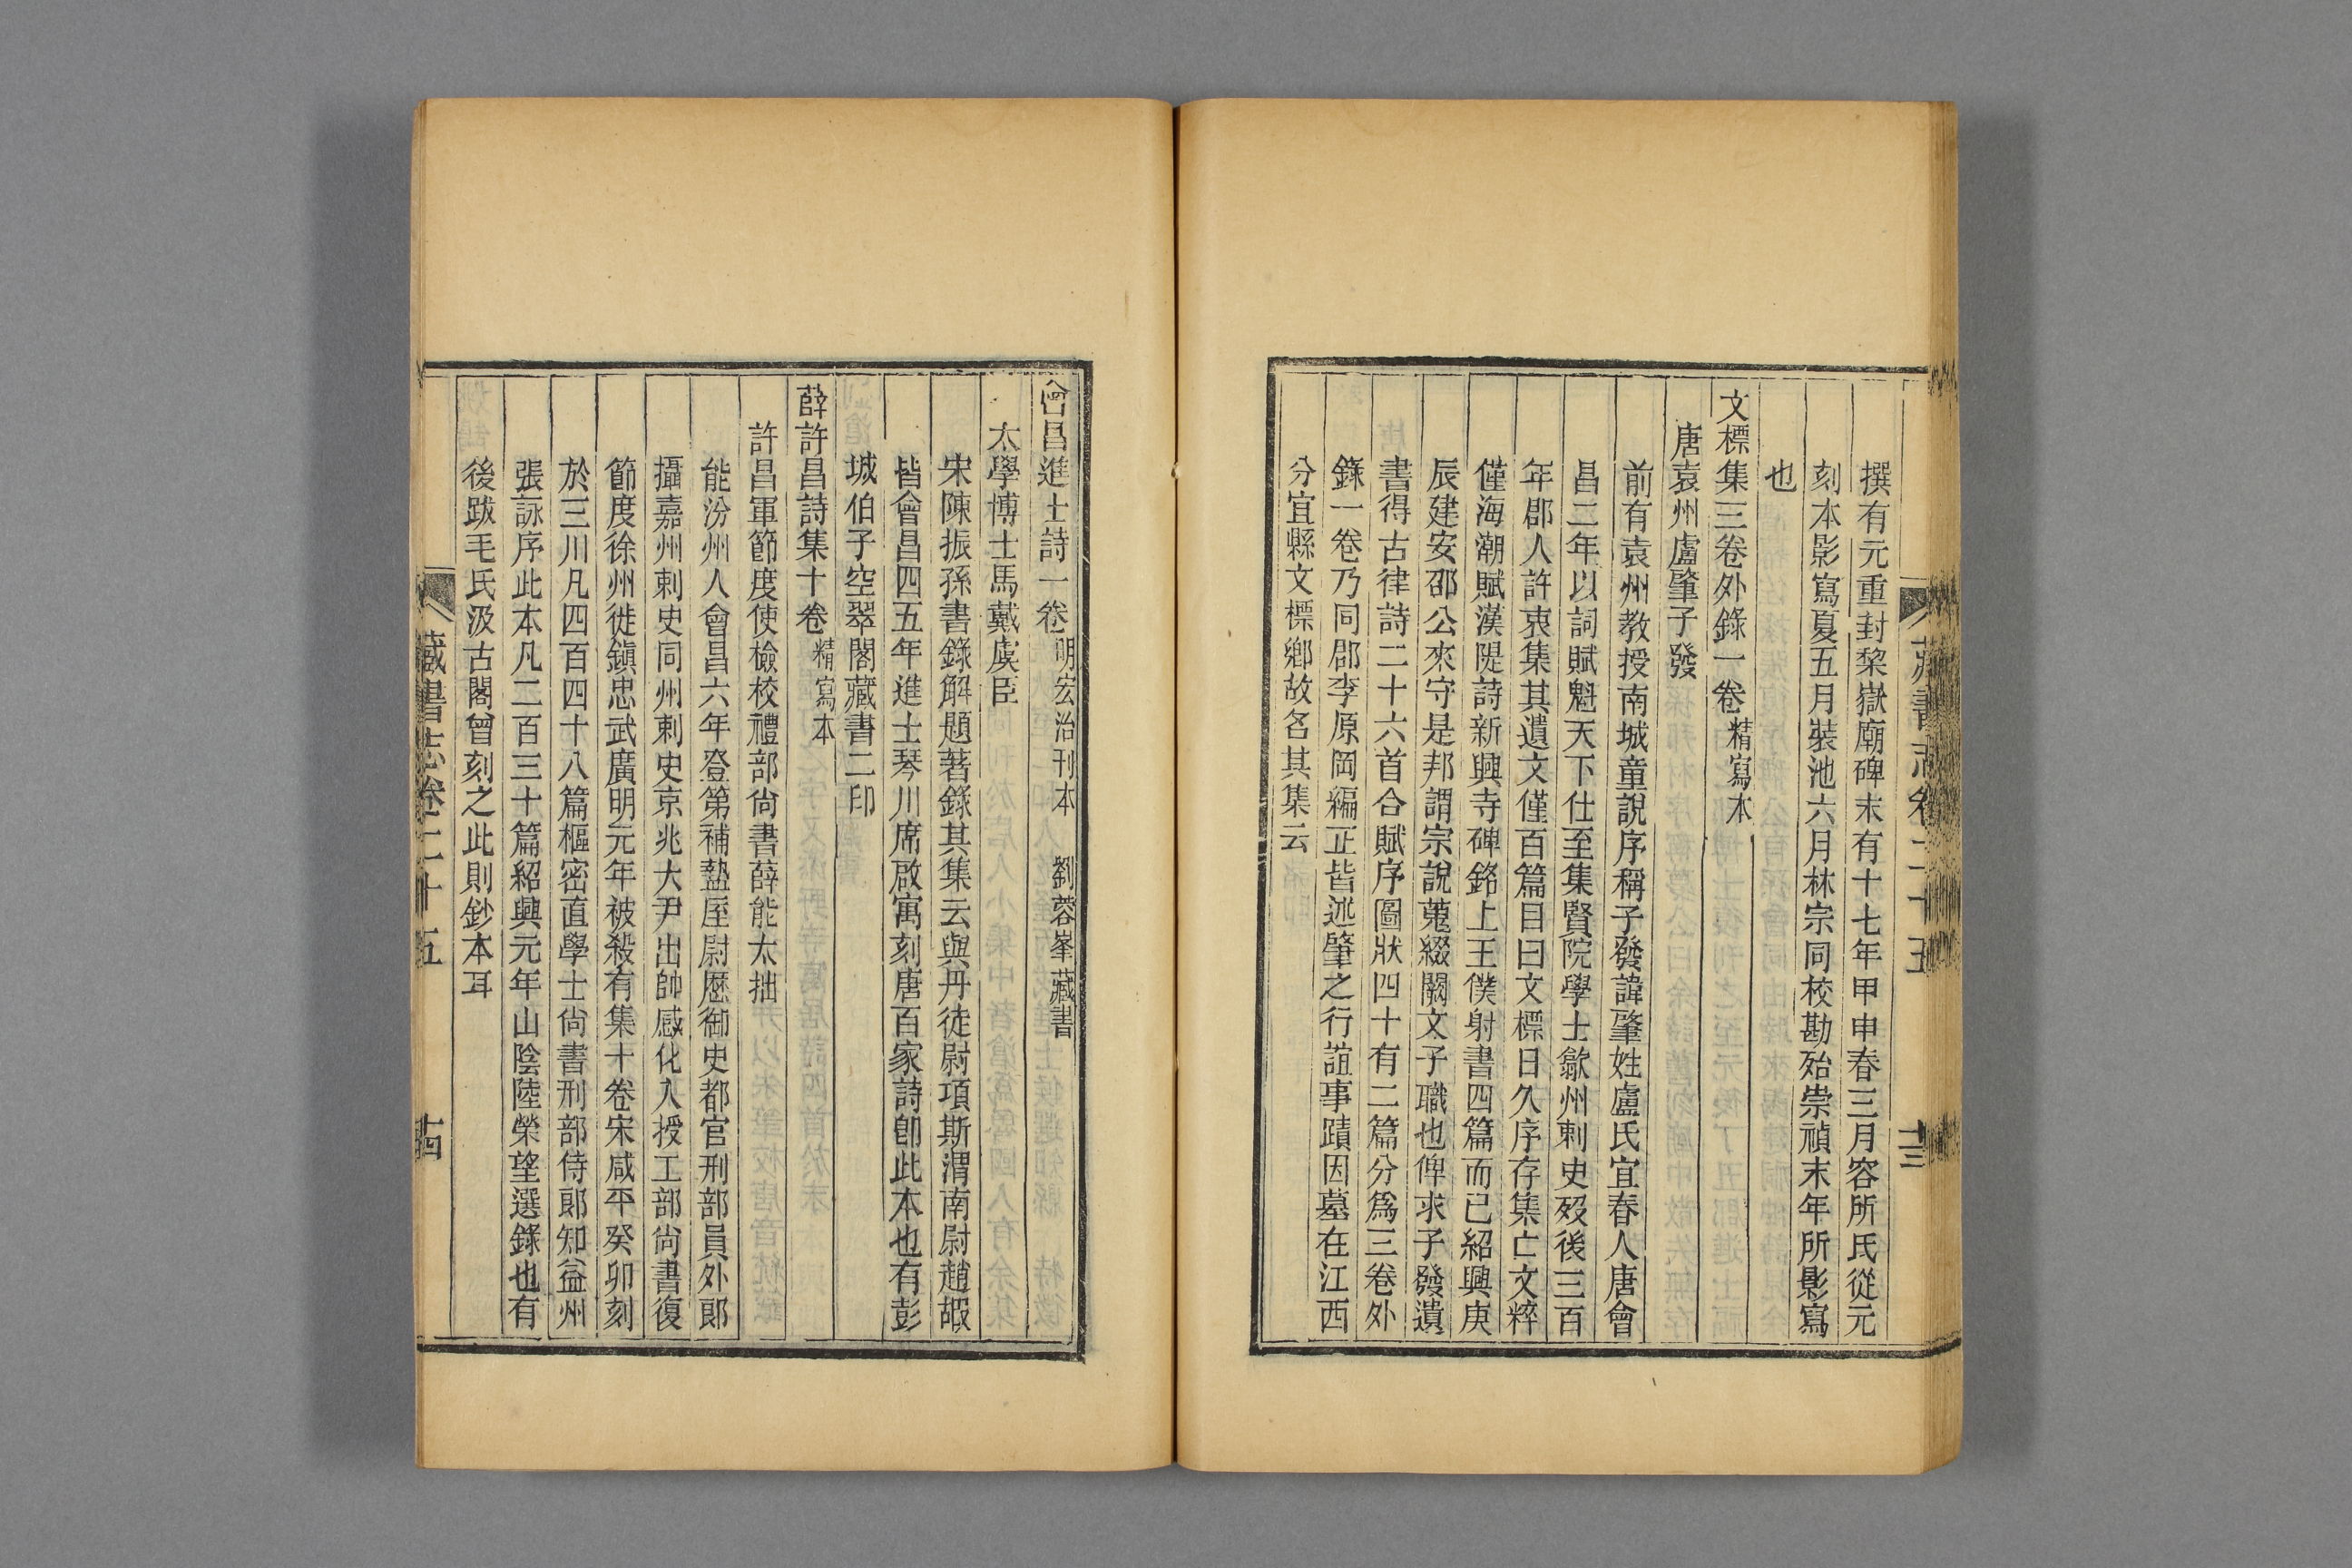 撰有元重封黎嶽廟碑末有十七年甲申春三月容所氏從元
刻本影寫夏五月裝池六月林宗同校勘殆崇禎末年所影寫
也
文標集三卷外錄一卷 精寫本
唐袁州盧肇子發
前有袁州教授南城童說序稱子發諱肇姓盧氏宜春人唐會
昌二年以詞賦魁天下仕至集賢院學士歙州刺史歿後三百
年郡人許衷集其遺文僅百篇目曰文標日久序存集亡文粹
僅海潮賦漢隄詩新興寺碑銘上王僕射書四篇而已紹興庚
辰建安邵公來守是邦謂宗說蒐綴闕文子職也俾求子發遺
書得古律詩二十六首合賦序圖狀四十有二篇分爲三卷外
錄一卷乃同郡李原岡編正皆述肇之行誼事蹟因墓在江西
分宜縣文標鄉故名其集云
會昌進士詩一卷 明宏治刊本 劉蓉峯藏書
太學博士馬戴虞臣
宋陳振孫書錄解題著錄其集云與丹徒尉項斯渭南尉趙嘏
皆會昌四五年進士琴川席啟寓刻唐百家詩卽此本也有彭
城伯子空翠閣藏書二印
薛許昌詩集十卷 精寫本
許昌軍節度使檢校禮部尙書薛能太拙
能汾州人會昌六年登第補盩厔尉歷御史都官刑部員外郎
攝嘉州刺史同州刺史京兆大尹出帥感化入授工部尙書復
節度徐州徙鎭忠武廣明元年被殺有集十卷宋咸平癸卯刻
於三川凡四百四十八篇樞密直學士尙書刑部侍郎知益州
張詠序此本凡二百三十篇紹興元年山陰陸榮望選錄也有
後跋毛氏汲古閣曾刻之此則鈔本耳
藏書志卷二十五
十四